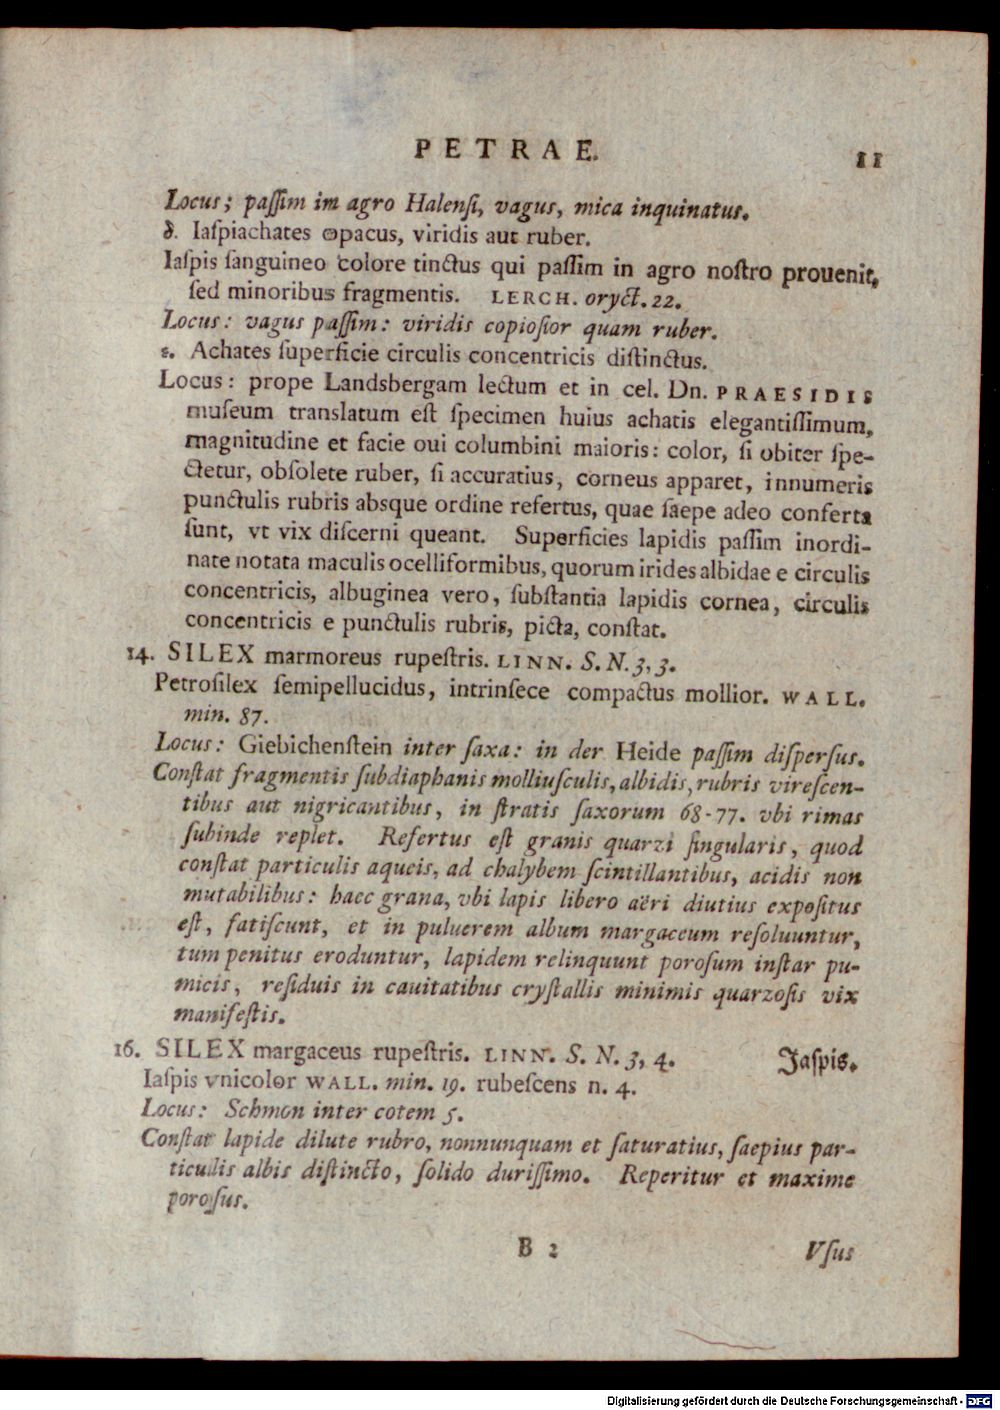 PETRAE. 11
Locus; paſſim im agro Halenſi, vagus, mica inquinatus.
δ. Iaſpiachates opacus, viridis aut ruber.
Iaſpis ſanguineo colore tinctus qui paſſim in agro noſtro prouenit,
ſed minoribus fragmentis. LERCH. oryct. 22.
Locus: vagus paſſim: viridis copioſior quam ruber.
ε. Achates ſuperficie circulis concentricis diſtinctus.
Locus: prope Landsbergam lectum et in cel. Dn. PRAESIDIS
muſeum translatum eſt ſpecimen huius achatis elegantiſſimum,
magnitudine et facie oui columbini maioris: color, ſi obiter ſpe-
ctetur, obſolete ruber, ſi accuratius, corneus apparet, innumeris
punctulis rubris absque ordine refertus, quae ſaepe adeo conferta
ſunt, vt vix diſcerni queant. Superficies lapidis paſſim inordi-
nate notata maculis ocelliformibus, quorum irides albidae e circulis
concentricis, albuginea vero, ſubſtantia lapidis cornea, circulis
concentricis e punctulis rubris, picta, conſtat.
14. SILEX marmoreus rupeſtris. LINN. S. N. 3, 3.
Petroſilex ſemipellucidus, intrinſece compactus mollior. WALL.
min. 87.
Locus: Giebichenſtein inter ſaxa: in der Heide paſſim diſperſus.
Conſtat fragmentis ſubdiaphanis molliuſculis, albidis, rubris vireſcen-
tibus aut nigricantibus, in ſtratis ſaxorum 68-77. vbi rimas
ſubinde replet. Refertus eſt granis quarzi ſingularis, quod
conſtat particulis aqueis, ad chalybem ſcintillantibus, acidis non
mutabilibus: haec grana, vbi lapis libero aëri diutius expoſitus
eſt, fatiſcunt, et in puluerem album margaceum reſoluuntur,
tum penitus eroduntur, lapidem relinquunt poroſum inſtar pu-
micis, reſiduis in cauitatibus cryſtallis minimis quarzoſis vix
manifeſtis.
16. SILEX margaceus rupeſtris. LINN. S. N. 3, 4. Jaſpis.
Iaſpis vnicolor WALL. min. 19. rubeſcens n. 4.
Locus: Schmon inter cotem 5.
Conſtat lapide dilute rubro, nonnunquam et ſaturatius, ſaepius par-
ticulis albis diſtincto, ſolido duriſſimo. Reperitur et maxime
poroſus.
B 2 Vſus
Digitalisierung gefördert durch die Deutsche Forschungsgemeinschaft - DFG